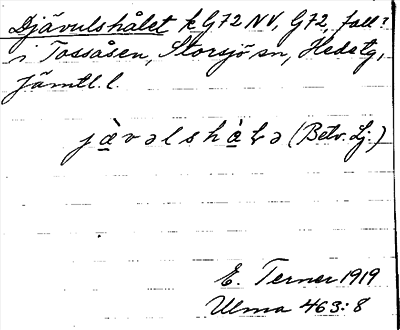 Djävulshålet k G72 NV, G72, fall?
i Tossåsen, Storsjö sn, Hede tg,
Jämtl. l.
jàvəlshàɫə (Betv. Lj.)
E. Terner 1919
Ulma 463:8